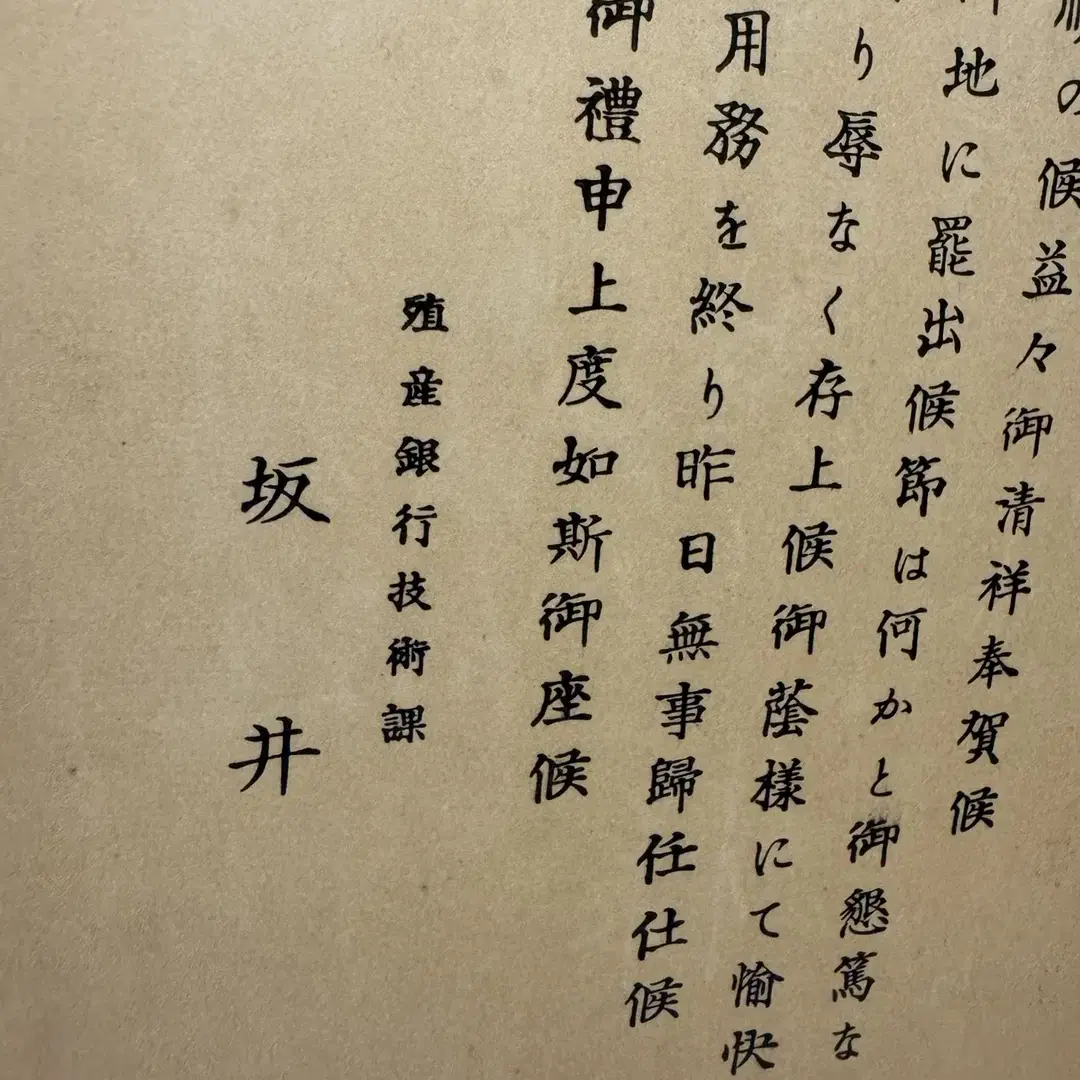 の候益々御清祥奉賀候
地に罷出候節は何かと御懇篤な
り辱なく存上候御蔭様にて愉快
用務を終り昨日無事歸任仕候
御禮申上度如斯御座候
殖産銀行技術課
坂井